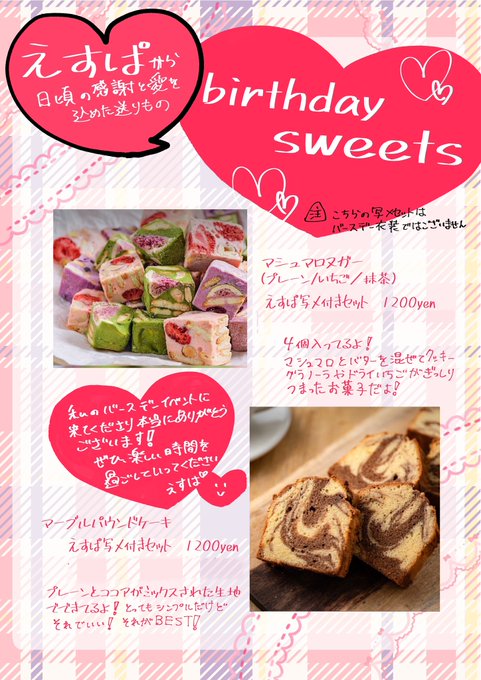 えすぱから
日頃の感謝と愛を
込めた送りもの
birthday
sweets
注 こちらの写メセットは
バースデー衣装ではございません
マシュマロヌガー
(プレーン/いちご/抹茶)
えすぱ写メ付きセット 1200yen
4個入ってるよ!
マシュマロとバターを混ぜてクッキー
グラノーラやドライいちごがぎっしり
つまったお菓子だよ!
私のバースデーイベントに
来てくださり本当にありがとう
ございます!!
ぜひ、楽しい時間を
過ごしていってください
えすぱ
マーブルパウンドケーキ
えすぱ写メ付きセット 1200yen
プレーンとココアがミックスされた生地
でできてるよ! とってもシンプルだけど
それでいい! それがBEST!